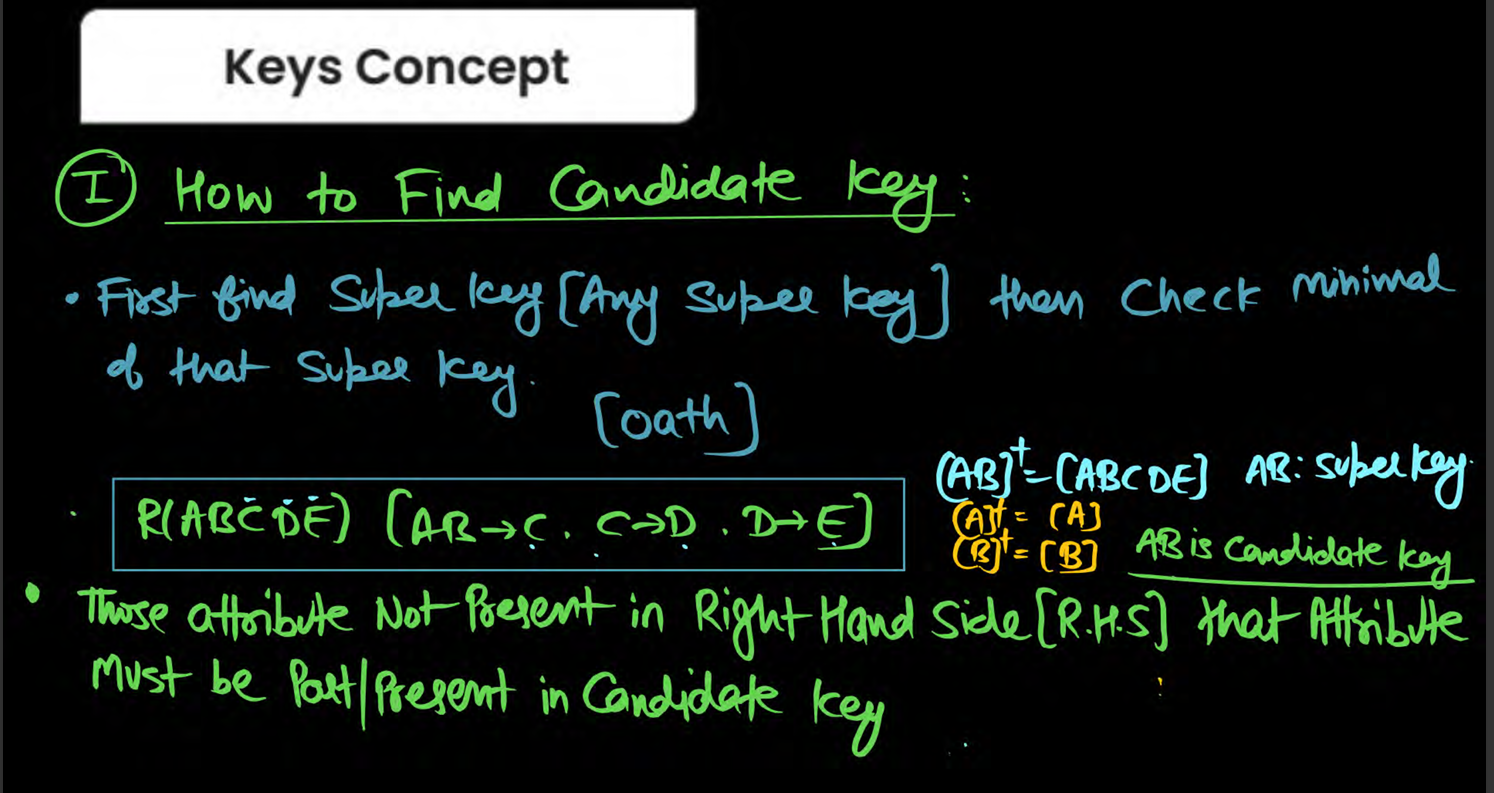 Keys Concept
I How to Find Candidate Key :
• First find Super key [Any Super key] then Check minimal
of that Super key.
[oath]
R(ABCDE) [AB→C, C→D, D→E]
[AB]⁺ = [ABCDE] AB: Super key.
[A]⁺ = [A]
[B]⁺ = [B]
AB is Candidate key
• Those attribute Not Present in Right Hand Side [R.H.S] that Attribute
Must be Part/Present in Candidate key